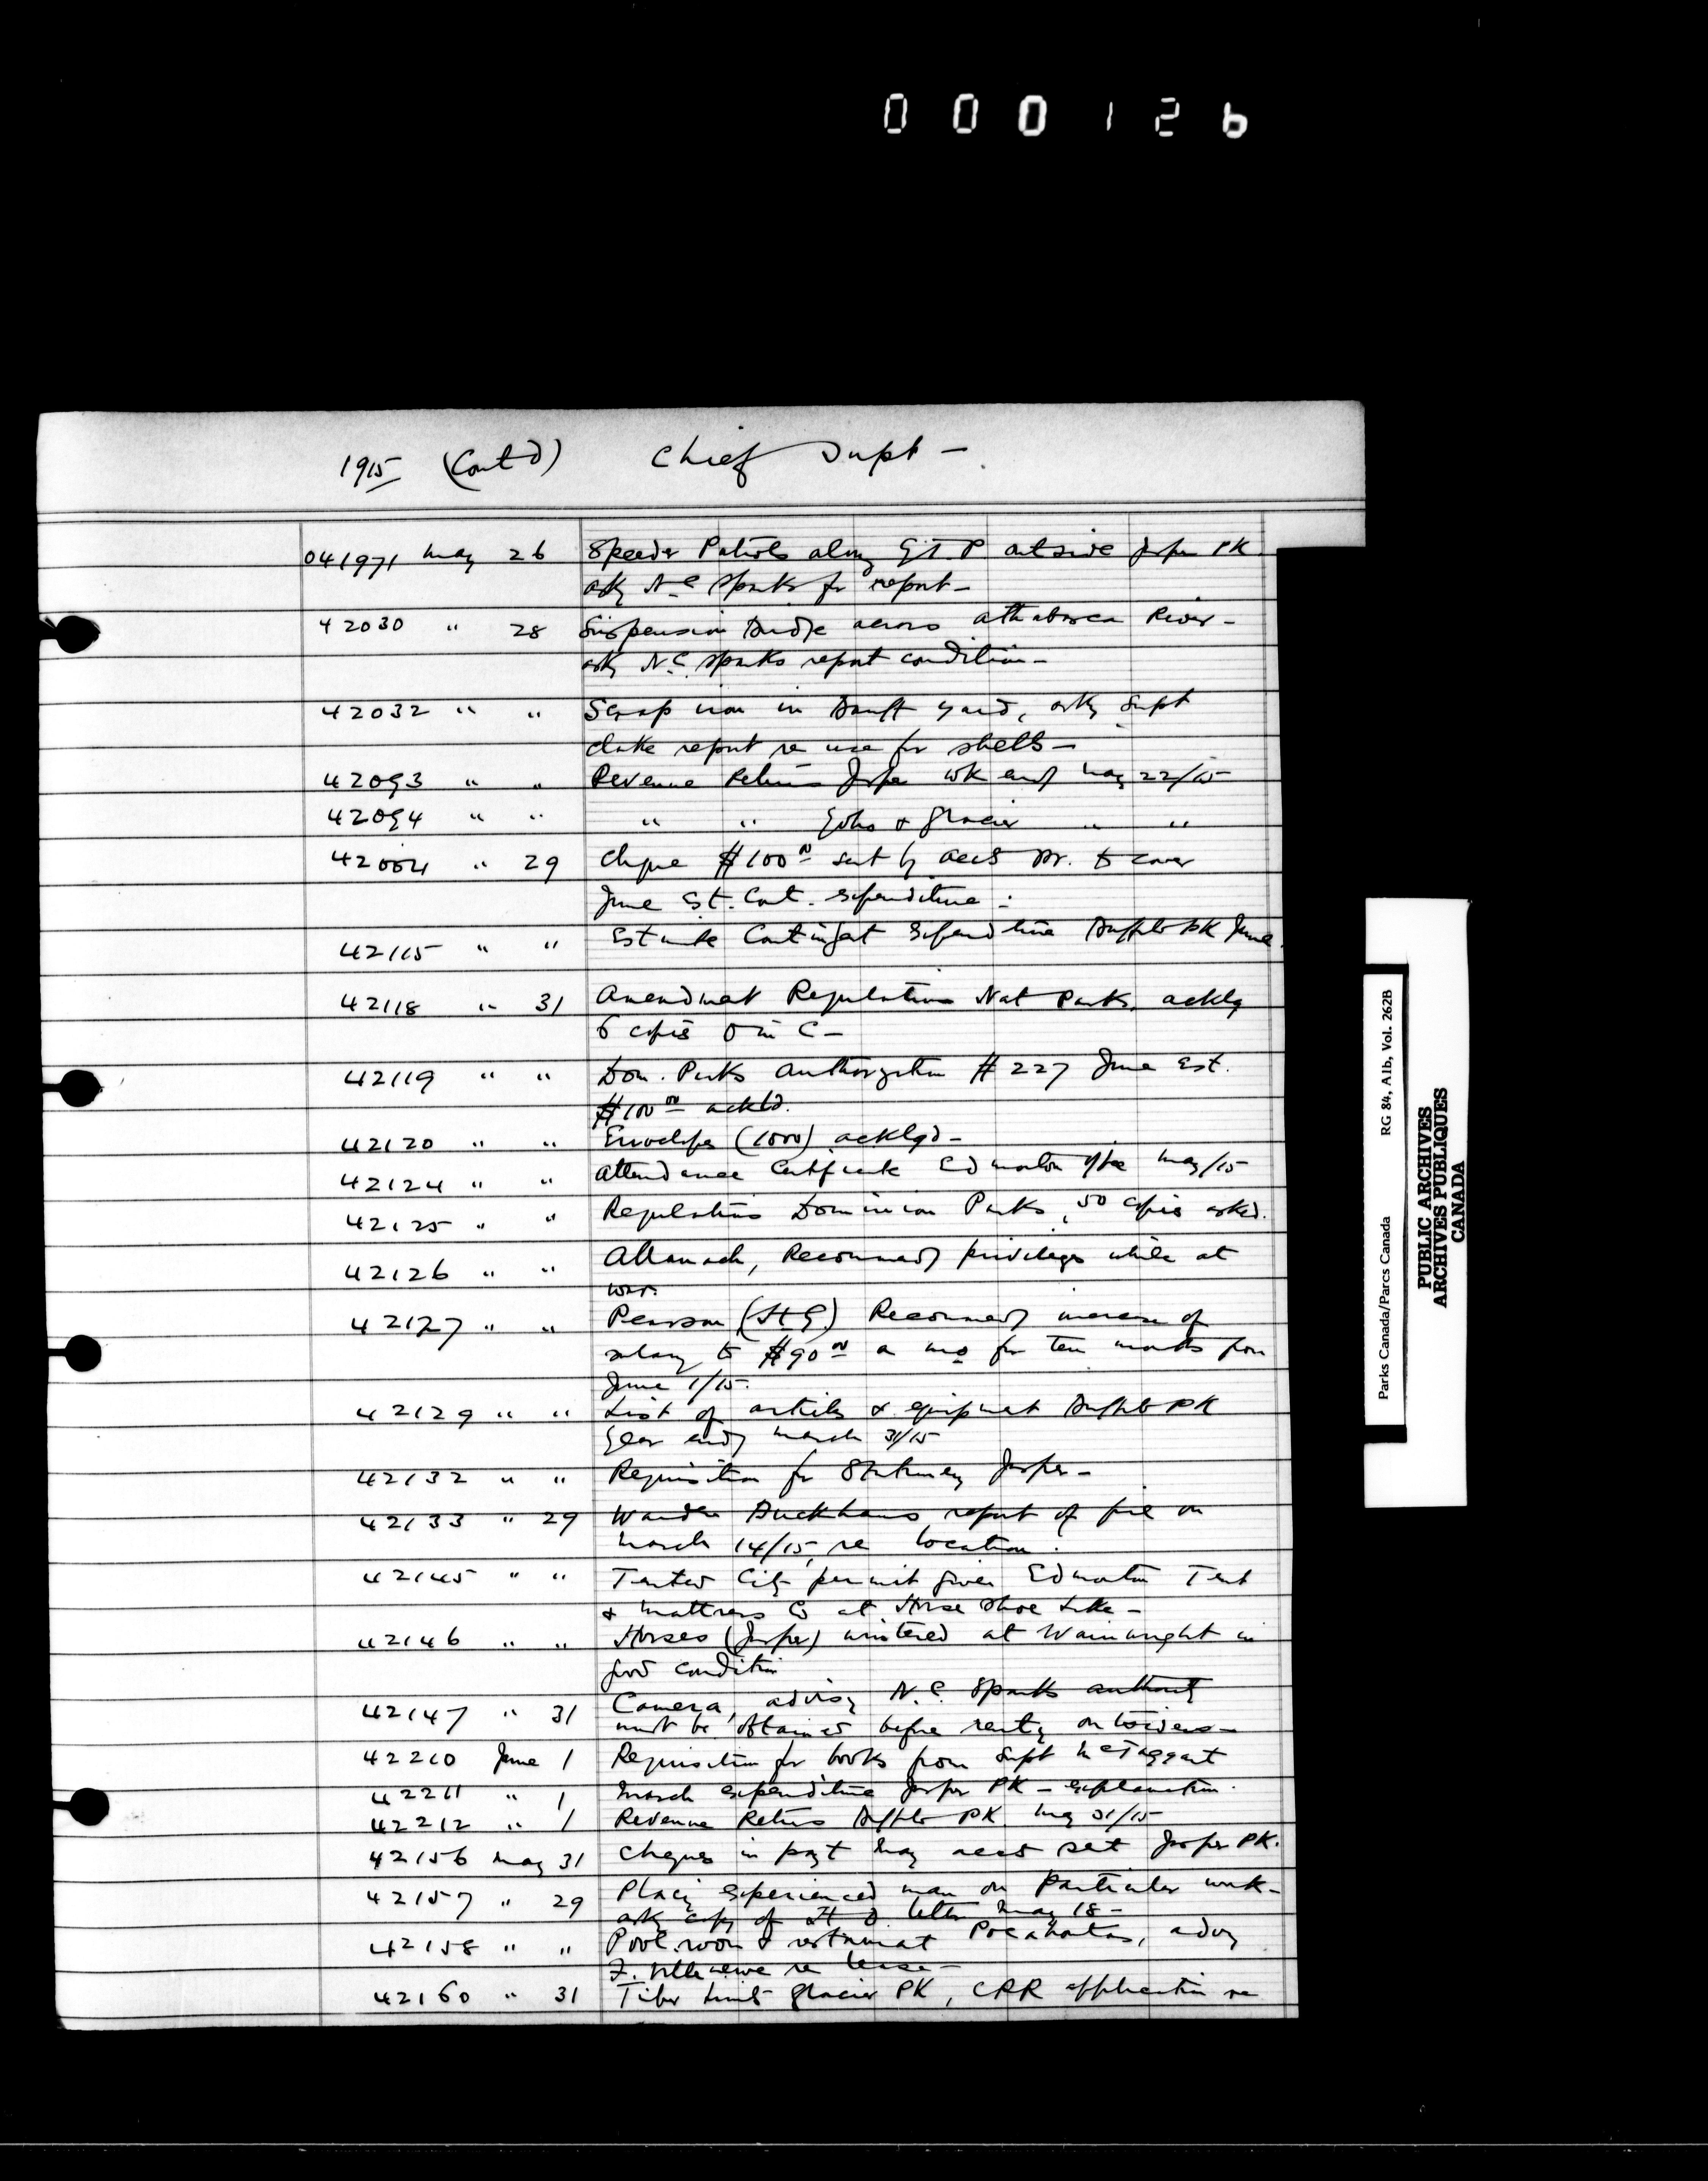 000126
1915 (Cont'd) Chief Supt -
041971 May 26 Speeder Patrols along G.T.P outside Jasper PK
askg N.C Sparks for report -
42030 " 28 Suspension Bridge across Athabasca River -
askg N.C. Sparks report condition -
42032 " " Scrap iron in Banff yard, askg Supt
Clarke report re use for shells -
42093 " " Revenue Returns Jasper wk endg May 22/15
42094 " " " " Yoho & Glacier " "
42004 " 29 Cheque $100 00 sent by Accts Br. to cover
June Est. Cont. expenditure -
42115 " " Estimate Contingent Expenditure Buffalo PK June.
42118 " 31 Amendment Regulations Nat Parks, acklg
6 copies O in C -
42119 " " Dom. Parks Authorization # 227 June Est.
$100 00 ackld.
42120 " " Envelopes (1000) acklgd -
42124 " " Attendance Certificate Edmonton office May/15
42125 " " Regulations Dominion Parks, 50 copies asked.
42126 " " Recommendg privileges while at
war.
42127 " " Pearson (H.G.) Recommendg increase of
salary to $90 00 a mo for ten months from
June 1/15.
42129 " " List of articles & equipment Buffalo PK
Year endg March 31/15
42132 " " Requisition for Stationery Jasper -
42133 " 29 Warden report of fire on
March 14/15, re location.
42145 " " Tented City permit given Edmonton Tent
& Mattress Co at Horse Shoe Lake -
42146 " " Horses (Jasper) wintered at Wainwright in
good condition
42147 " 31 Camera, advisg N.C. Sparks authority
must be obtained before rentg outsiders -
42210 June 1 Requisition for books from Supt McTaggart
42211 " 1 March expenditure Jasper PK - explanation.
42212 " 1 Revenue Returns Buffalo PK May 31/15
42156 May 31 Cheques in payt May accts sent Jasper PK.
42157 " 29 Placing experienced man on particular work -
askg copy of H O letter May 18 -
42158 " " Pool room & restaurant Pocahontas, advsg
F. Villeneuve re lease -
42160 " 31 Timber limits Glacier PK, CPR application re
Parks Canada/Parcs Canada RG 84, Alb, Vol. 262B
PUBLIC ARCHIVES
ARCHIVES PUBLIQUES
CANADA